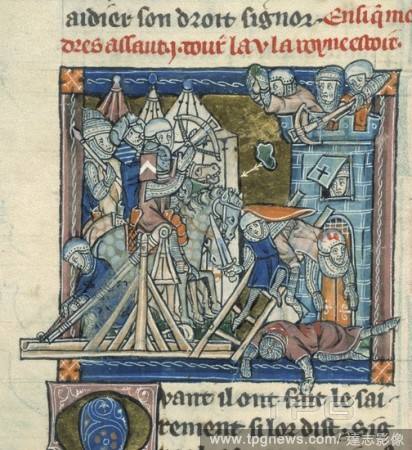 aidier son droit signor. Ensi q mo
dres assaut tour la v la royne estoit.
Qvant il ont fait le sai
rement si lor dist. Sig
TPG
www.tpgnews.com / 達志影像